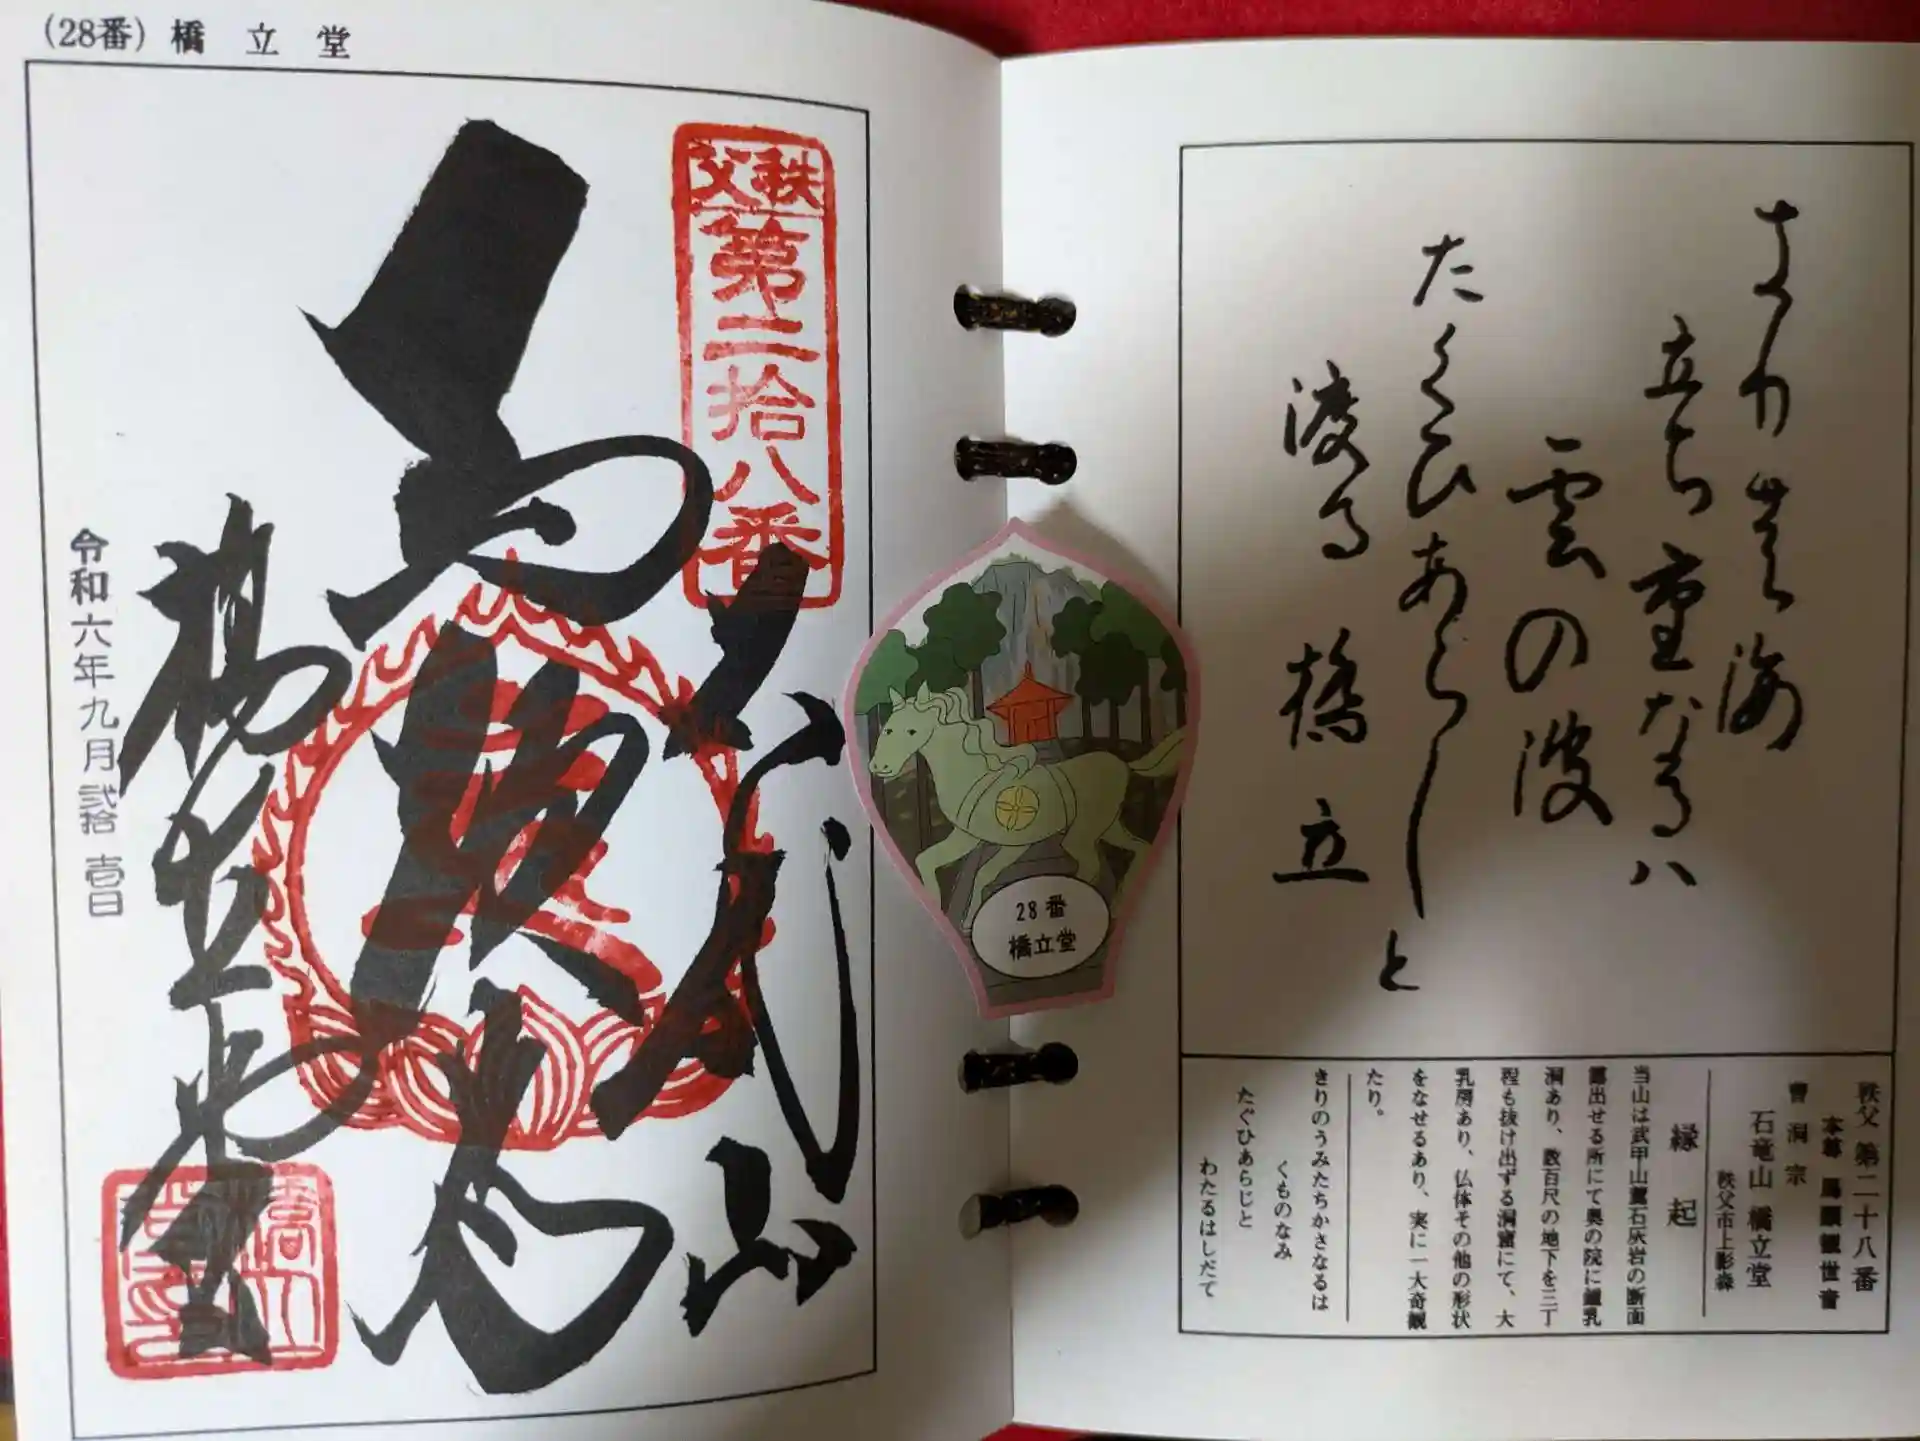 (28番) 橋立堂
秩父
第二拾八番
奉拝
石龍山
馬頭尊
橋立堂
令和六年九月弐拾壱日
28番
橋立堂
きりの海
立ち重なるハ
雲の波
たくひあらしと
渡る橋立
秩父第二十八番
本尊 馬頭観世音
曹洞宗
石竜山 橋立堂
秩父市上影森
縁起
当山は武甲山麓石灰岩の断面
露出せる所にて奥の院に鍾乳
洞あり、数百尺の地下を三丁
程も抜け出ずる洞窟にて、大
乳房あり、仏体その他の形状
をなせるあり、実に一大奇観
たり。
きりのうみたちかさなるは
くものなみ
たぐひあらじと
わたるはしだて